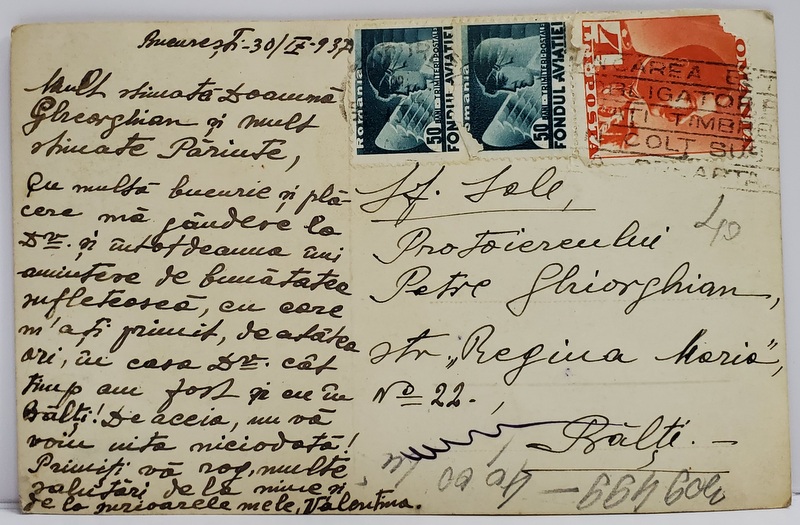 București-30/IX-937
Mult stimată Doamnă
Gheorghian și mult
stimate Părinte,
Cu multă bucurie și plă-
cere mă gândesc la
Dv. și întotdeauna îmi
amintesc de bunătatea
sufletească, cu care
m'ați primit, de atâtea
ori, în casa Dv. cât
timp am fost și eu în
Bălți! De aceia, nu vă
voiu uita niciodată!
Primiți vă rog, multe
salutări de la mine și
de la surioarele mele, Valentina.
România
50 BANI
TIMBRU POSTALE
FONDUL AVIAȚIEI
România
50 BANI
FONDUL AVIAȚIEI
ROMANIA
LEI POSTA
AREA
BLIGATOR
TI TIMBR
COLT SUS
Sf. Sale,
Protoiereului
Petre Ghiorghian,
str. „Regina Maria",
No 22.
Bălți. –
40